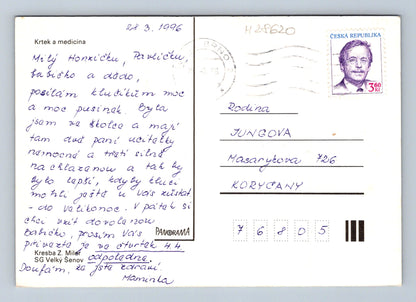 28 3. 1996
Krtek a medicina
Milý Honzíčku, Pavlíčku,
babičko a dědo,
posílám klučíkům moc
a moc pusinek. Byla
jsem ve školce a mají
tam dvě paní učitelky
nemocné a třetí silně
nachlazenou a tak by
bylo lepší, kdyby kluci
mohli ještě u vás zůstat
- do Velikonoc. V pátek si
chci vzít dovolenou
babičko, prosím Vás
přivezte je ve čtvrtek 4.4.
odpoledne.
Doufám, že jste zdraví.
Maminka
Kresba Z. Miler
SG Velký Šenov
PANORAMA
BRNO
H218620
ČESKÁ REPUBLIKA
3,60
Kč
Rodina
JUNGOVA
Masarykova 726
KORYČANY
7 6 8 0 5